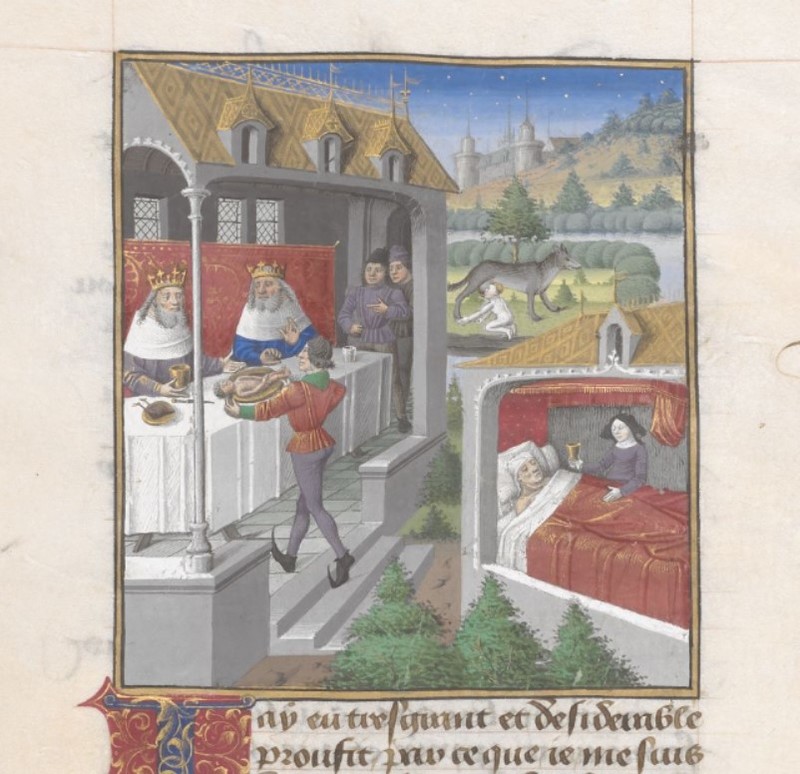 Iay eu tresgrant et desiderable
proufit par ce que ie me suis